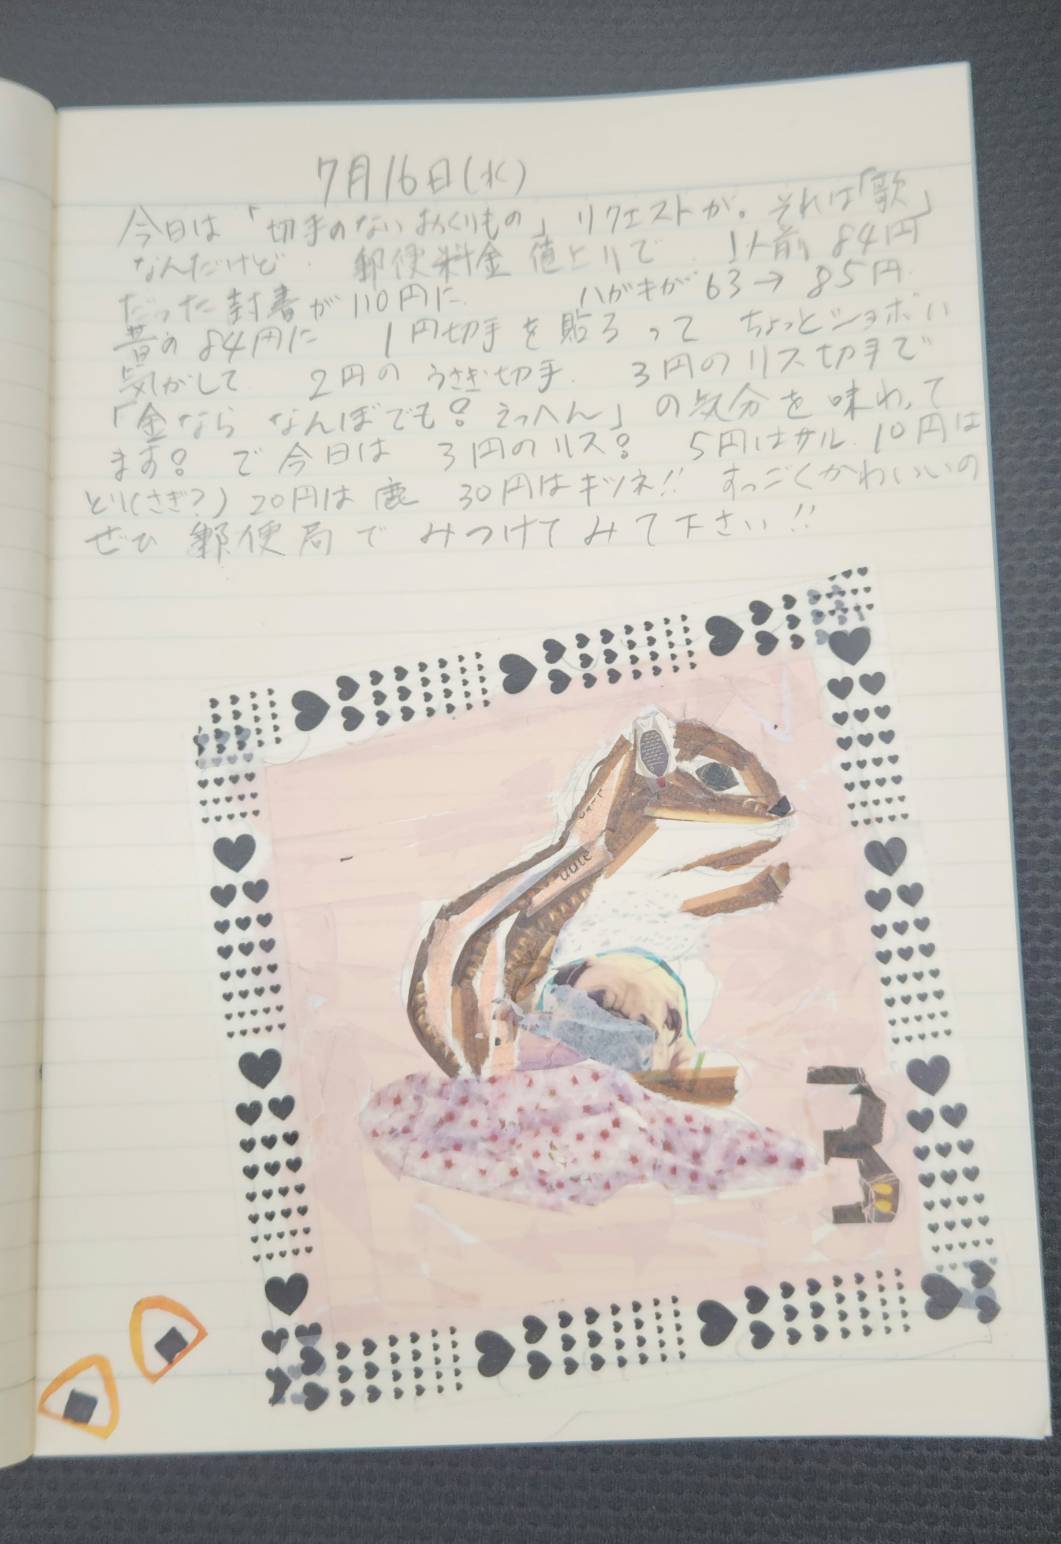 7月16日(水)
今日は「切手のないおくりもの」リクエストが。それは「歌」
なんだけど. 郵便料金 値上りで. 1人前 84円
だった封書が110円に. ハガキが63→85円.
昔の84円に 1円切手を貼るって ちょっとショボい
気がして 2円のうさぎ切手. 3円のリス切手で
「金なら なんぼでも? えっへん」の気分を味わって
ます? で今日は 3円のリス? 5円はサル 10円は
とり(さぎ?) 20円は鹿 30円はキツネ!! すっごくかわいいの
ぜひ 郵便局で みつけてみて下さい!!
3